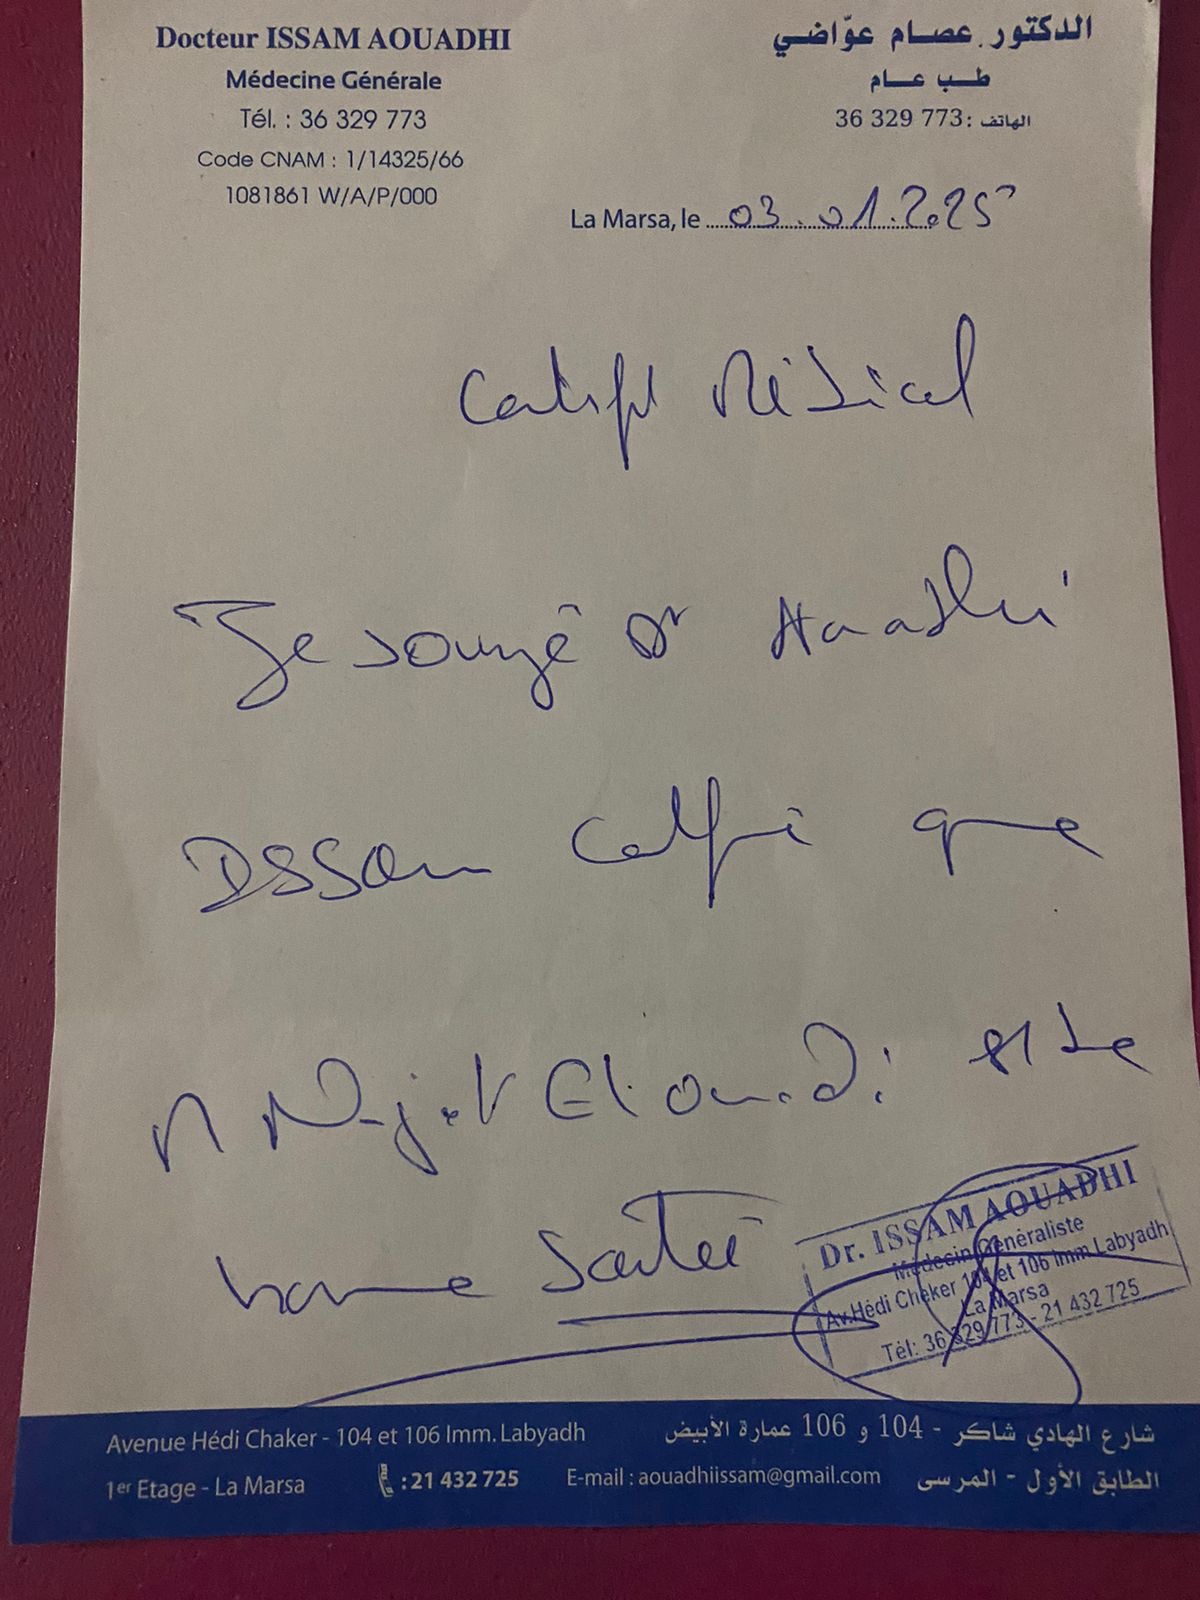 Docteur ISSAM AOUADHI
Médecine Générale
Tél. : 36 329 773
Code CNAM : 1/14325/66
1081861 W/A/P/000
الدكتور عصام عوّاضي
طب عام
الهاتف : 36 329 773
La Marsa, le 03.01.2025
Certificat Médical
Je soussigné Dr Aouadhi
Issam certifie que
Najet El ouadi est de
bonne Santé
Dr. ISSAM AOUADHI
Médecin Généraliste
Av.Hédi Cheker 104 et 106 Imm Labyadh
La Marsa
Tél: 36 329 773 - 21 432 725
Avenue Hédi Chaker - 104 et 106 Imm. Labyadh
1er Etage - La Marsa
:21 432 725
E-mail : aouadhiissam@gmail.com
شارع الهادي شاكر - 104 و 106 عمارة الأبيض
الطابق الأول - المرسى